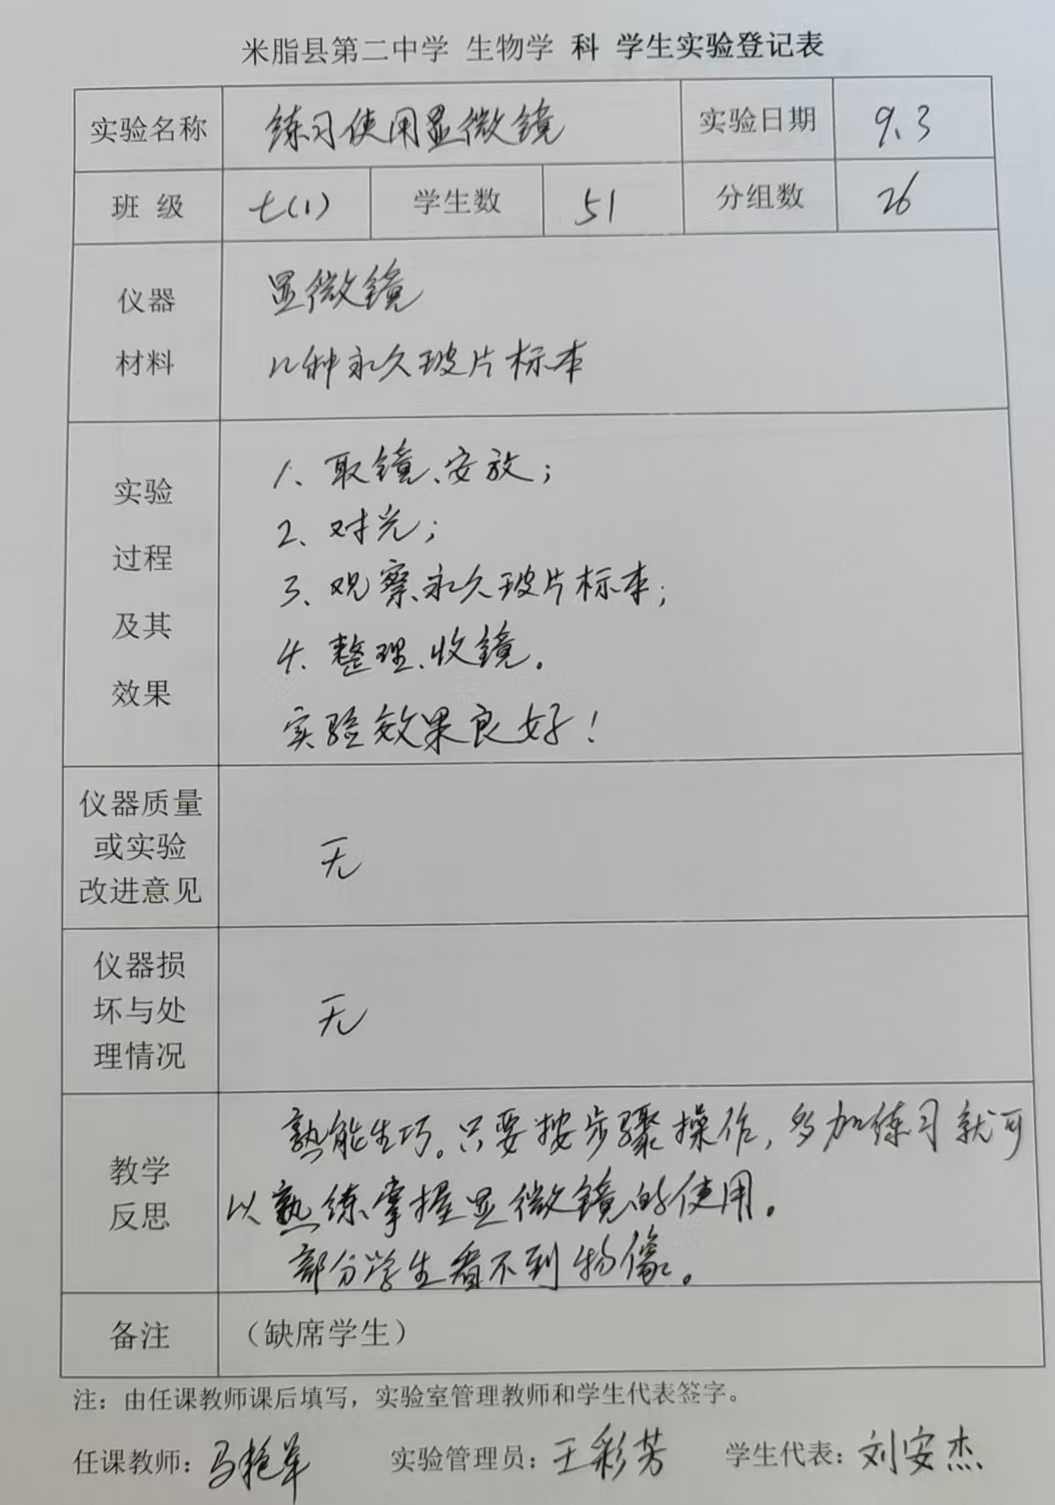 米脂县第二中学 生物学 科 学生实验登记表
实验名称 练习使用显微镜 实验日期 9.3
班 级 七(1) 学生数 51 分组数 26
仪器 显微镜
材料 几种永久玻片标本
实验 1、取镜、安放；
过程 2、对光；
及其 3、观察永久玻片标本；
效果 4、整理、收镜。
实验效果良好！
仪器质量
或实验 无
改进意见
仪器损
坏与处 无
理情况
教学 熟能生巧。只要按步骤操作，多加练习就可
反思 以熟练掌握显微镜的使用。
部分学生看不到物像。
备注 （缺席学生）
注：由任课教师课后填写，实验室管理教师和学生代表签字。
任课教师：马艳军 实验管理员：王彩芳 学生代表：刘安杰